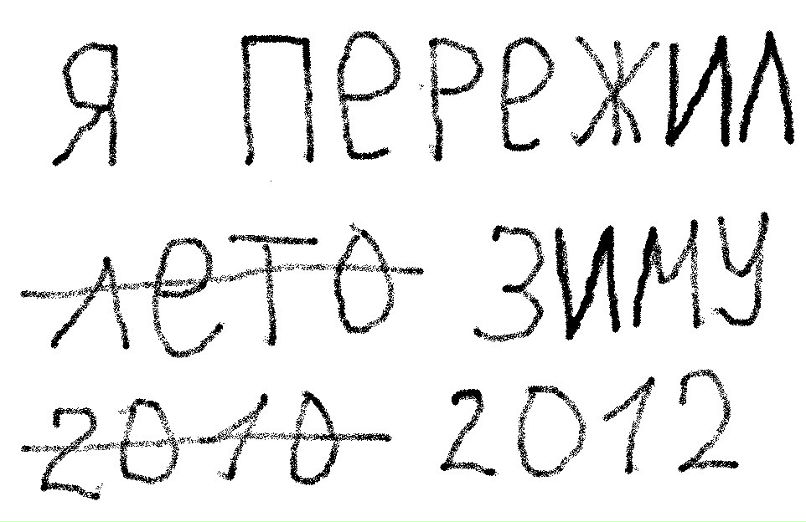 Я ПеРеЖИЛ
ЛеТО ЗИМУ
2010 2012